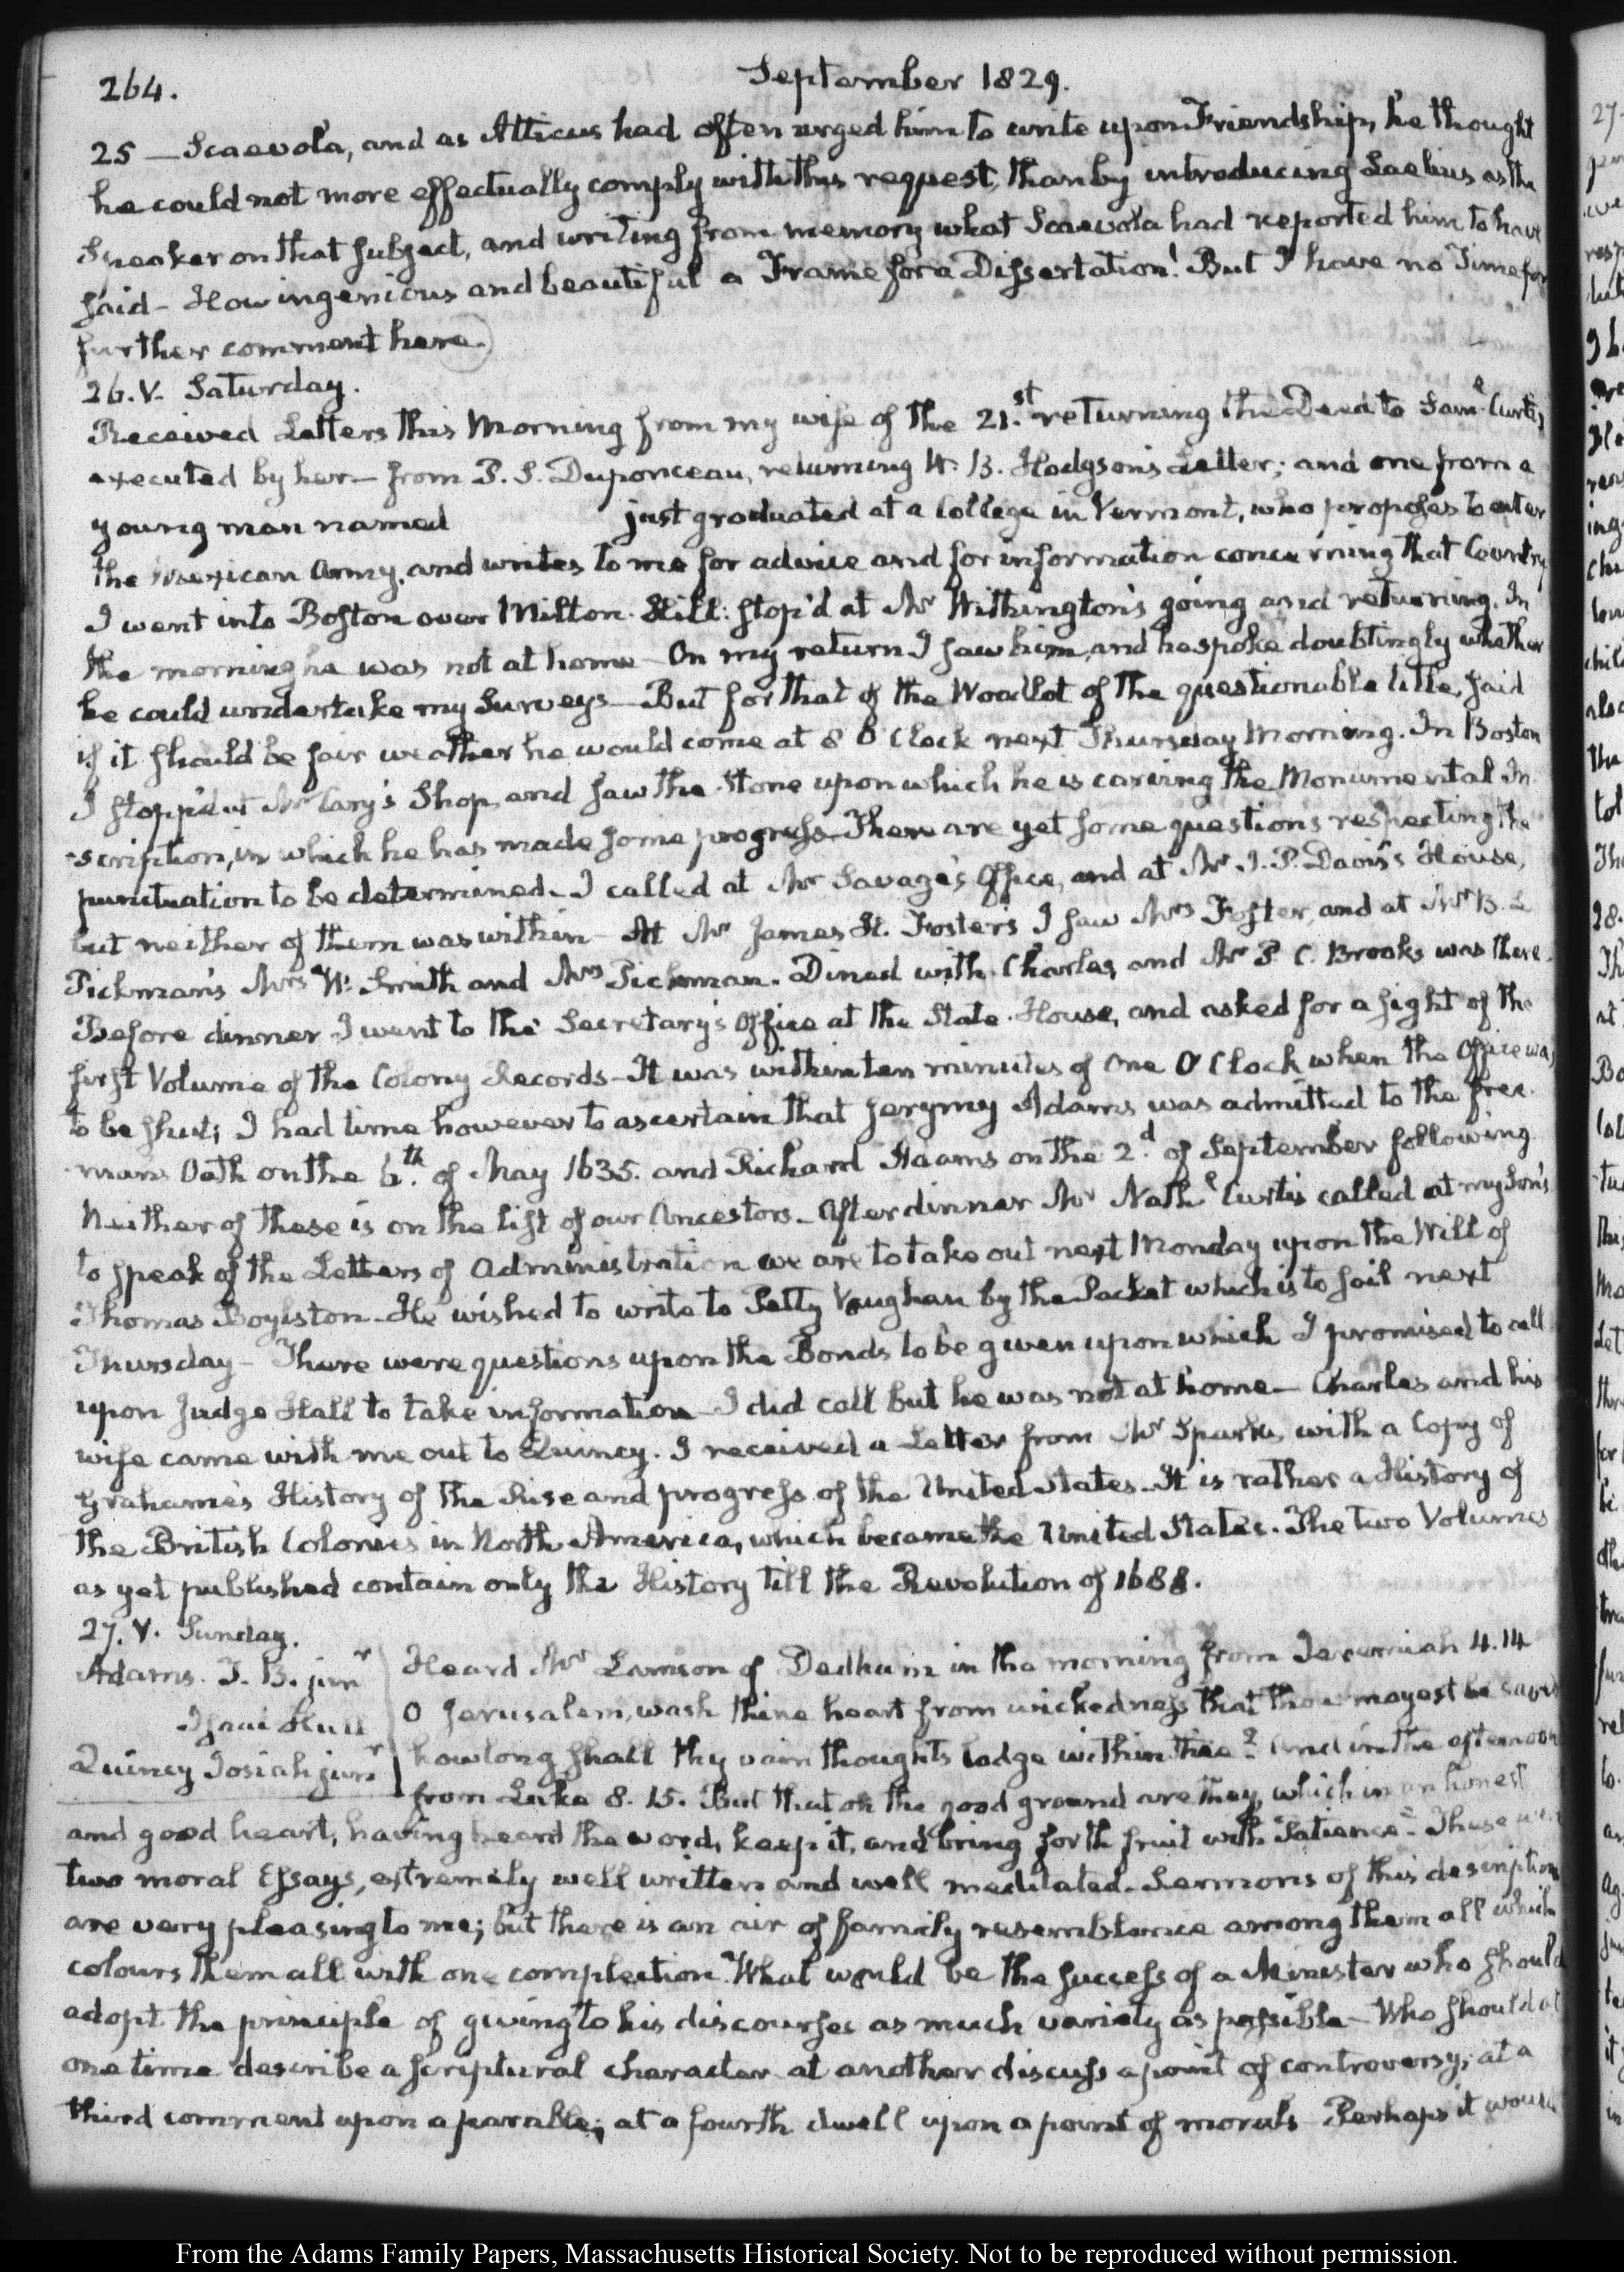 264.
September 1829.
25 — Scaevola, and as Atticus had often urged him to write upon Friendship, he thought
he could not more effectually comply with this request, than by introducing Laelius as the
Speaker on that subject, and writing from memory what Scaevola had reported him to have
said — How ingenious and beautiful a Frame for a Dissertation! But I have no Time for
further comment here.
26. V. Saturday.
Received Letters this Morning from my wife of the 21.st returning the Deed to Saml. Curtis
executed by her — from P. S. Duponceau, returning W. B. Hodgson's Letter; and one from a
young man named just graduated at a College in Vermont, who proposes to enter
the Mexican Army, and writes to me for advice and for information concerning that Country
I went into Boston over Milton Hill: stop'd at Mr Withington's going and returning. In
the morning he was not at home — On my return I saw him, and he spoke doubtingly whether
he could undertake my Surveys — But for that of the Woodlot of the questionable title, said
if it should be fair weather he would come at 8 O'Clock next Thursday Morning. In Boston
I stopp'd at Mr Cary's Shop, and saw the Stone upon which he is carving the Monumental In
-scription, in which he has made some progress — There are yet some questions respecting the
punctuation to be determined — I called at Mr Savage's Office, and at Mr I. P. Davis's House,
but neither of them was within — At Mr James H. Foster's I saw Mrs Foster, and at Mr B. L
Pickman's Mrs W. Smith and Mrs Pickman. Dined with Charles, and Mr P. C. Brooks was there.
Before dinner I went to the Secretary's Office at the State House, and asked for a sight of the
first Volume of the Colony Records — It was within ten minutes of One O'Clock when the Office was
to be shut; I had time however to ascertain that Jeremy Adams was admitted to the free-
mans Oath on the 6.th of May 1635. and Richard Adams on the 2.d of September following
Neither of these is on the list of our Ancestors — After dinner Mr Nathl Curtis called at my Son's
to speak of the Letters of Administration we are to take out next Monday upon the Will of
Thomas Boylston — He wished to write to Petty Vaughan by the Packet which is to sail next
Thursday — There were questions upon the Bonds to be given upon which I promised to call
upon Judge Hall to take information — I did call but he was not at home — Charles and his
wife came with me out to Quincy. I received a Letter from Mr Sparks, with a Copy of
Grahame's History of the Rise and progress of the United States — It is rather a History of
the British Colonies in North America, which became the United States. The two Volumes
as yet published contain only the History till the Revolution of 1688.
27. V. Sunday.
Adams. T. B. junr
Isaac Hull
Quincy Josiah junr
Heard Mr Lamson of Dedham in the morning from Jeremiah 4.14
O Jerusalem, wash thine heart from wickedness that thou mayest be saved
how long shall thy vain thoughts lodge within thee? And in the afternoon
from Luke 8. 15. But that on the good ground are they, which in an honest
and good heart, having heard the word, keep it, and bring forth fruit with Patience — These were
two moral Essays, extremely well written and well meditated — Sermons of this description
are very pleasing to me; but there is an air of family resemblance among them all which
colours them all with one complection. What would be the success of a Minister who should
adopt the principle of giving to his discourses as much variety as possible — Who should at
one time describe a scriptural character at another discuss a point of controversy; at a
third comment upon a parable; at a fourth dwell upon a point of morals Perhaps it would
From the Adams Family Papers, Massachusetts Historical Society. Not to be reproduced without permission.